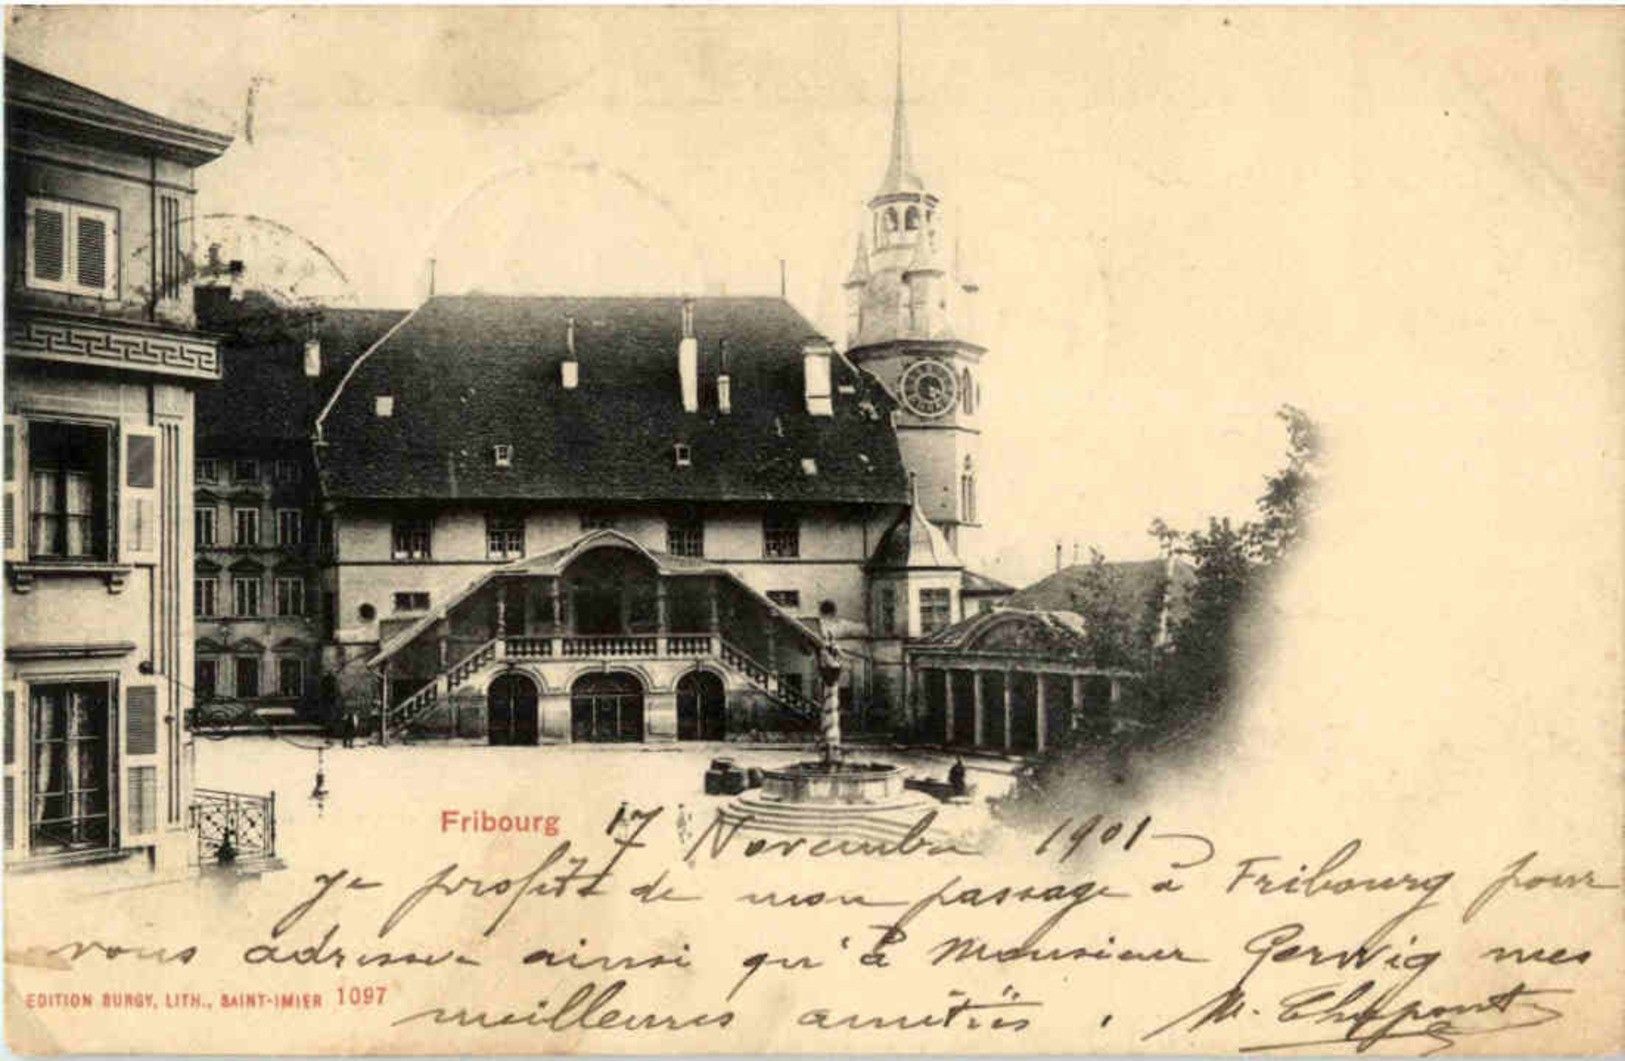 Fribourg
17 Novembre 1901
Je profite de mon passage à Fribourg pour
vous adresser ainsi qu'à Monsieur Gerwig mes
EDITION BURGY, LITH., SAINT-IMIER 1097
meilleures amitiés. M.